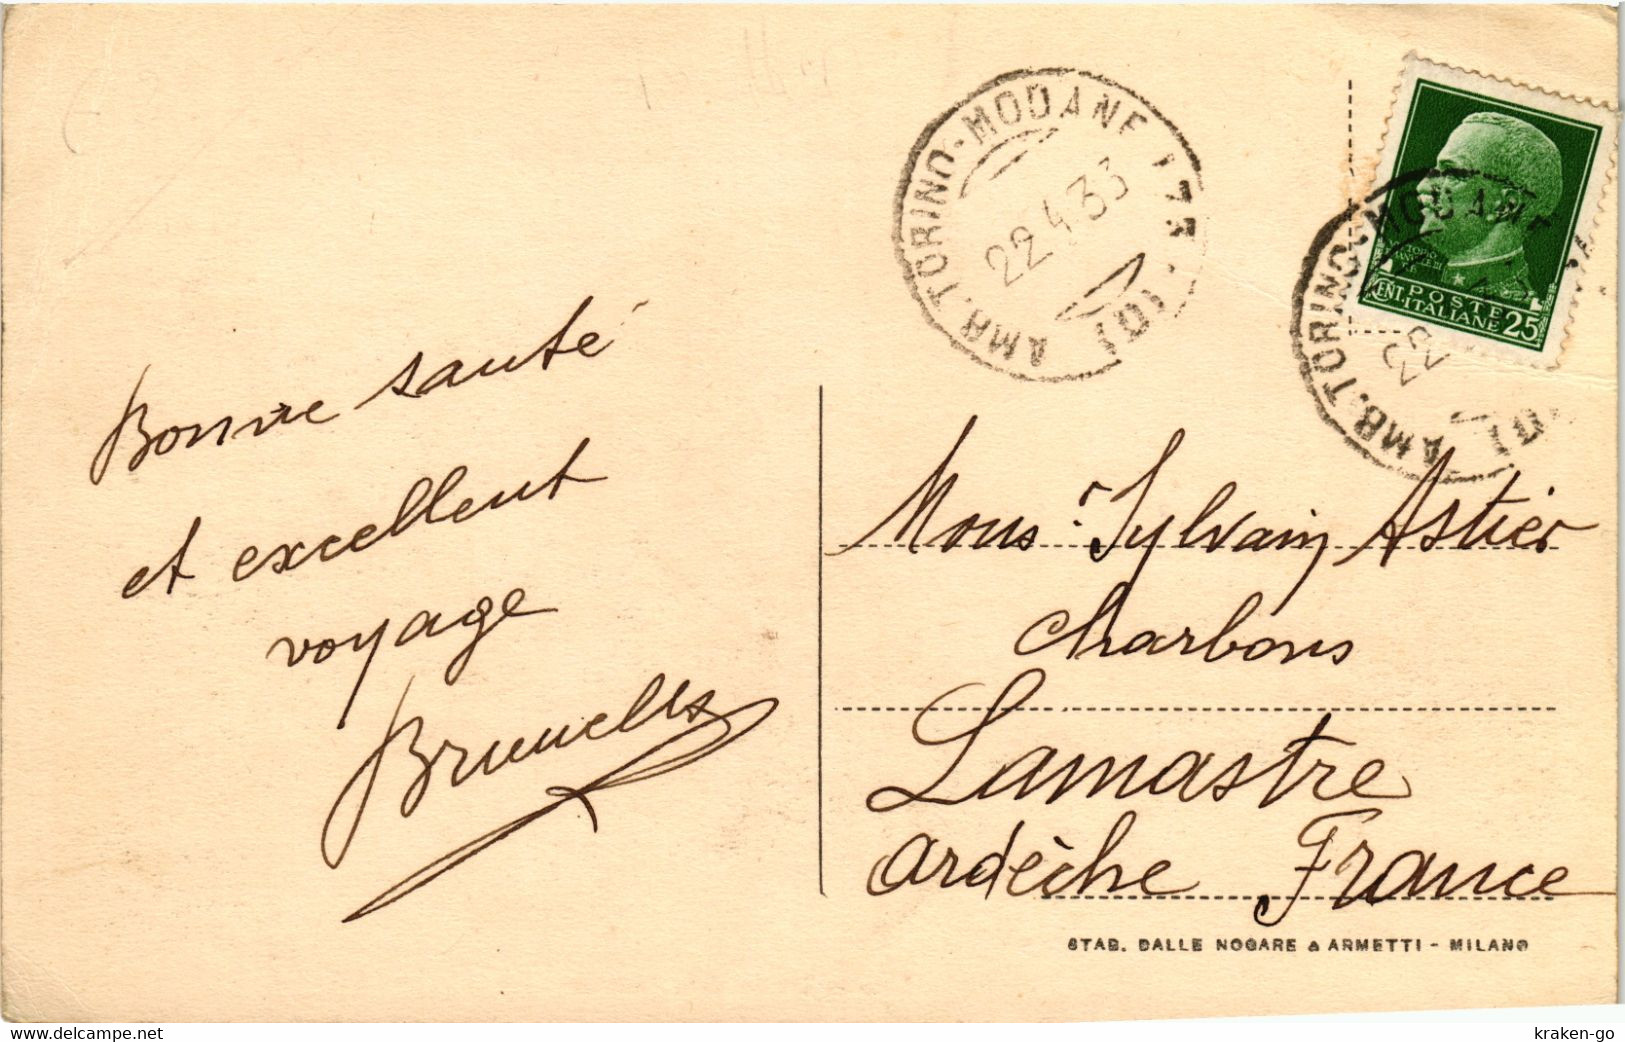 Bonne santé
et excellent
voyage
AMB. TORINO-MODANE 173
22.4.33
(D)
AMB. TORINO-MODANE
22
POSTE
ITALIANE
CENT. 25
Monsr. Sylvain Astier
Charbons
Lamastre
Ardèche France
STAB. DALLE NOGARE & ARMETTI - MILANO
www.delcampe.net
kraken-go